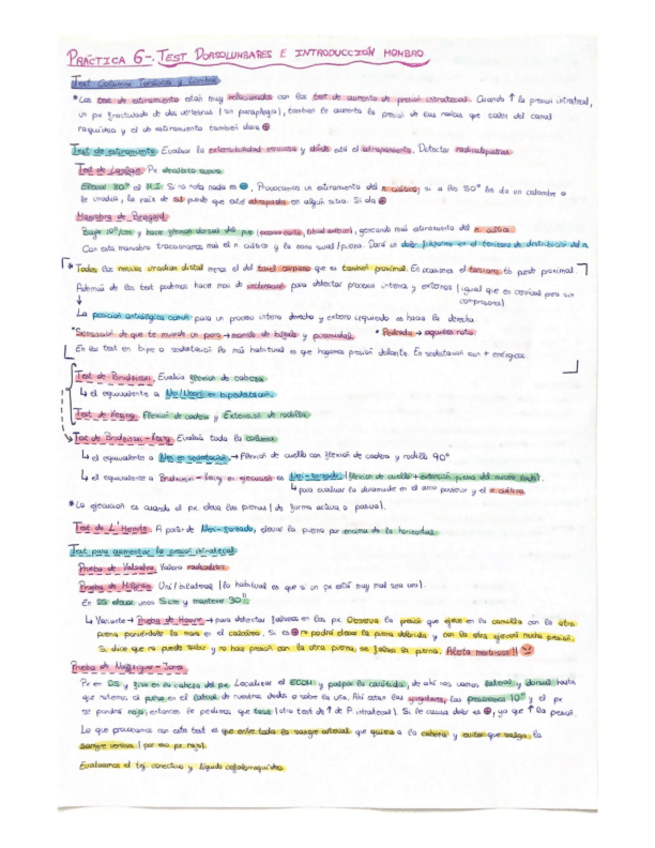 PRÁCTICA 6-. TEST DORSOLUMBARES E INTRODUCCIÓN HOMBRO.
Test Columna Torácica y Lumbar
*Los test de estiramiento están muy relacionados con los test de aumento de presión intratecal. Cuando ↑ la presión intratecal,
un px fracturado de dos vertebras (sin paraplejia), también le aumenta la presión de las raíces que salen del canal
raquídeo y el de estiramiento también dará ⊕
Test de estiramiento. Evaluar la extensibilidad nerviosa y dónde está el atrapamiento. Detectar radiculopatías.
Test de Lasègue. Px decúbito supino
Elevar 30° el MI. Si no nota nada es ⊖. Provocamos un estiramiento del n. ciático; si a los 30° les da un calambre o
le irradia, la raíz de puede que esté atrapada en algún sitio. Si da ⊕
Maniobra de Bragard.
Bajo 10°/cm y hace flexión dorsal del pie (peroneo corto, tibial anterior), generando más estiramiento del n. ciático
Con esta maniobra traccionamos más el n. ciático y la zona sural/pierna. Dará un dolor en el territorio de distribución del n.
*Todos los nervios irradian distal menos el del túnel carpiano que es también proximal. En ocasiones el tb puede proximal.
Además de los test podemos hacer uso de para detectar procesos internos y externos (igual que es cervical pero sin
compresores)
↓
La posición antiálgica común para un proceso interno derecho y externo izquierdo es hacia la derecha.
*Sensación de que te muerde un perro → y piramidal. • Pedrada → aquiles roto.
En los test en bipe o sedestación lo más habitual es que hagamos presión delante. En sedestación son +
Test de Brudzinski. Evalúa flexión de cabeza
↳ el equivalente a Neri en bipedestación.
Test de Kernig. Flexión de cadera y Extensión de rodilla
Test de Brudzinski-Kernig. Evalúa toda la columna
↳ el equivalente a Neri en sedestación → flexión de cuello con flexión de cadera y rodilla 90°
↳ el equivalente a Brudzinski-Kernig en ejecución es Neri-forzado (flexión de cuello + extensión pierna del mismo lado).
↳ para evaluar la duramadre en el arco posterior y el n. ciático.
*La ejecución es cuando el px eleva las piernas (de forma activa o pasiva).
Test de L'Hermite. A partir de Neri-forzado, elevar la pierna por encima de la horizontal
Test para aumentar la presión intratecal
Prueba de Valsalva. Valora radicular
Prueba de Milgram. Uni/bilateral (lo habitual es que si un px está muy mal sea uni).
En DS elevar unos 5cm y mantener 30''
↳ Variante → Prueba de Hoover → para detectar falsos en los px. Observa la presión que ejerce en la camilla con la otra
pierna poniéndole la mano en el calcáneo. Si es ⊕ no podrá elevar la pierna dolorida y con la otra ejercerá mucha presión.
Si dice que no puede subir y no hace presión con la otra pierna, es falsa la pierna. Alerta mentiroso!!
Prueba de Naffziger-Jones
Px en DS y gira la cabeza del px. Localizar el ECOM y palpar la carótida, de ahí nos vamos lateral y dorsal hasta
que notemos el pulso en el lateral de nuestros dedos o sobre la uña. Ahí están las yugulares, las presionamos 10'' y el px
se pondrá rojo, entonces le pedimos que tosa (otro test de ↑ de P. intratecal). Si le causa dolor es ⊕, ya que ↑ la presión.
Lo que provocamos con este test es que entre toda la sangre arterial que quiera a la cabeza y evitar que salga la
sangre venosa (por eso px rojo).
Evaluamos el tej. conectivo y líquido cefalorraquídeo.